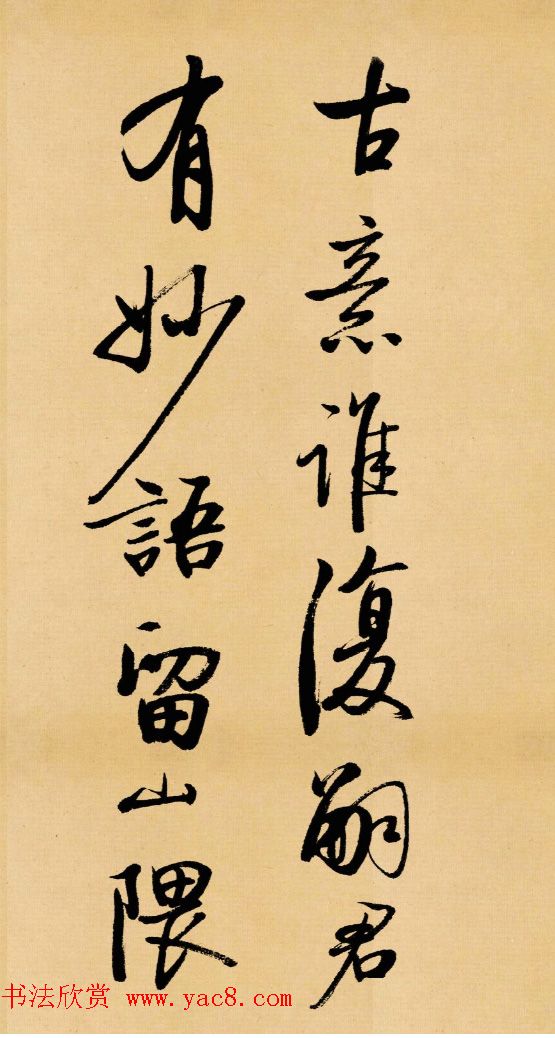 古意谁復嗣君
有妙語留山隈
书法欣赏 www.yac8.com